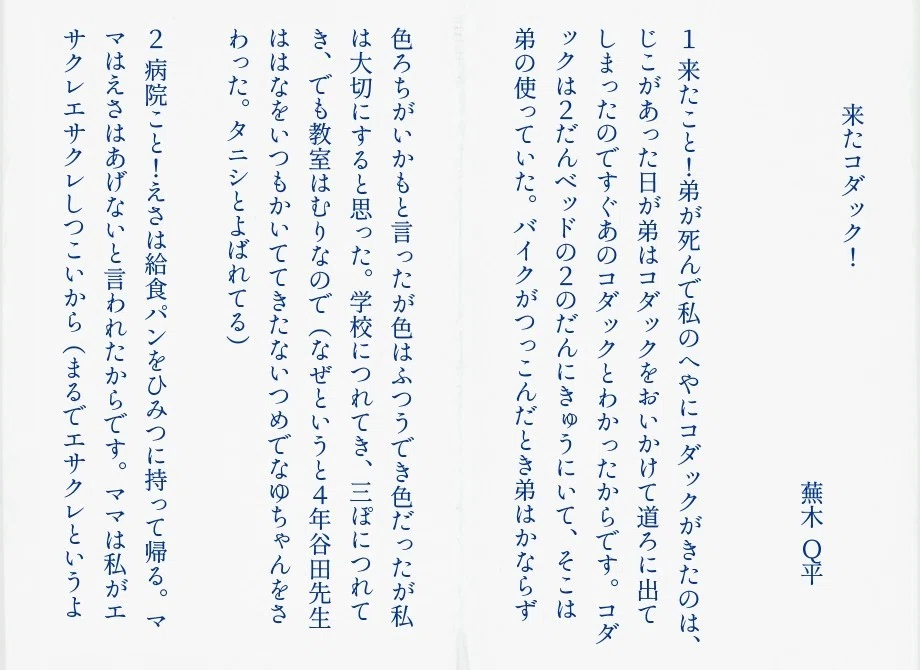 来たコダック！
蕪木 Q平
1 来たこと！弟が死んで私のへやにコダックがきたのは、
じこがあった日が弟はコダックをおいかけて道ろに出て
しまったのですぐあのコダックとわかったからです。コダ
ックは２だんベッドの２のだんにきゅうにいて、そこは
弟の使っていた。バイクがつっこんだとき弟はかならず
色ろちがいかもと言ったが色はふつうでき色だったが私
は大切にすると思った。学校につれてき、三ぽにつれて
き、でも教室はむりなので（なぜというと４年谷田先生
ははなをいつもかいててきたないつめでなゆちゃんをさ
わった。タニシとよばれてる）
2 病院こと！えさは給食パンをひみつに持って帰る。マ
マはえさはあげないと言われたからです。ママは私がエ
サクレエサクレしつこいから（まるでエサクレというよ